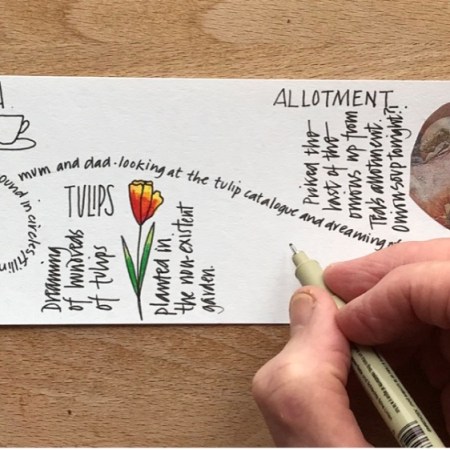 ALLOTMENT
mum and dad-looking at the tulip catalogue and dreaming
TULIPS
Dreaming
of hundreds
of tulips
Planted in
the non-existent
garden.
Picked the
last of the
onions up from
Ted's allotment.
Onion soup tonight?!
round in circles